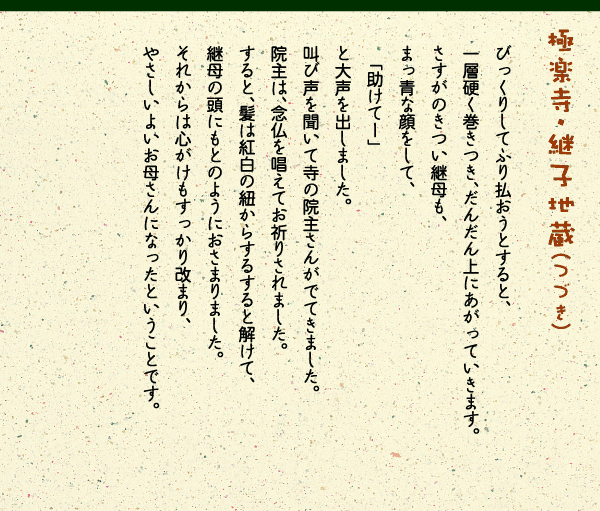 極楽寺・継子地蔵(つづき)
びっくりしてふり払おうとすると、
一層硬く巻きつき、だんだん上にあがっていきます。
さすがのきつい継母も、
まっ青な顔をして、
「助けてー」
と大声を出しました。
叫び声を聞いて寺の院主さんがでてきました。
院主は、念仏を唱えてお祈りされました。
すると、髪は紅白の紐からするすると解けて、
継母の頭にもとのようにおさまりました。
それからは心がけもすっかり改まり、
やさしいよいお母さんになったということです。